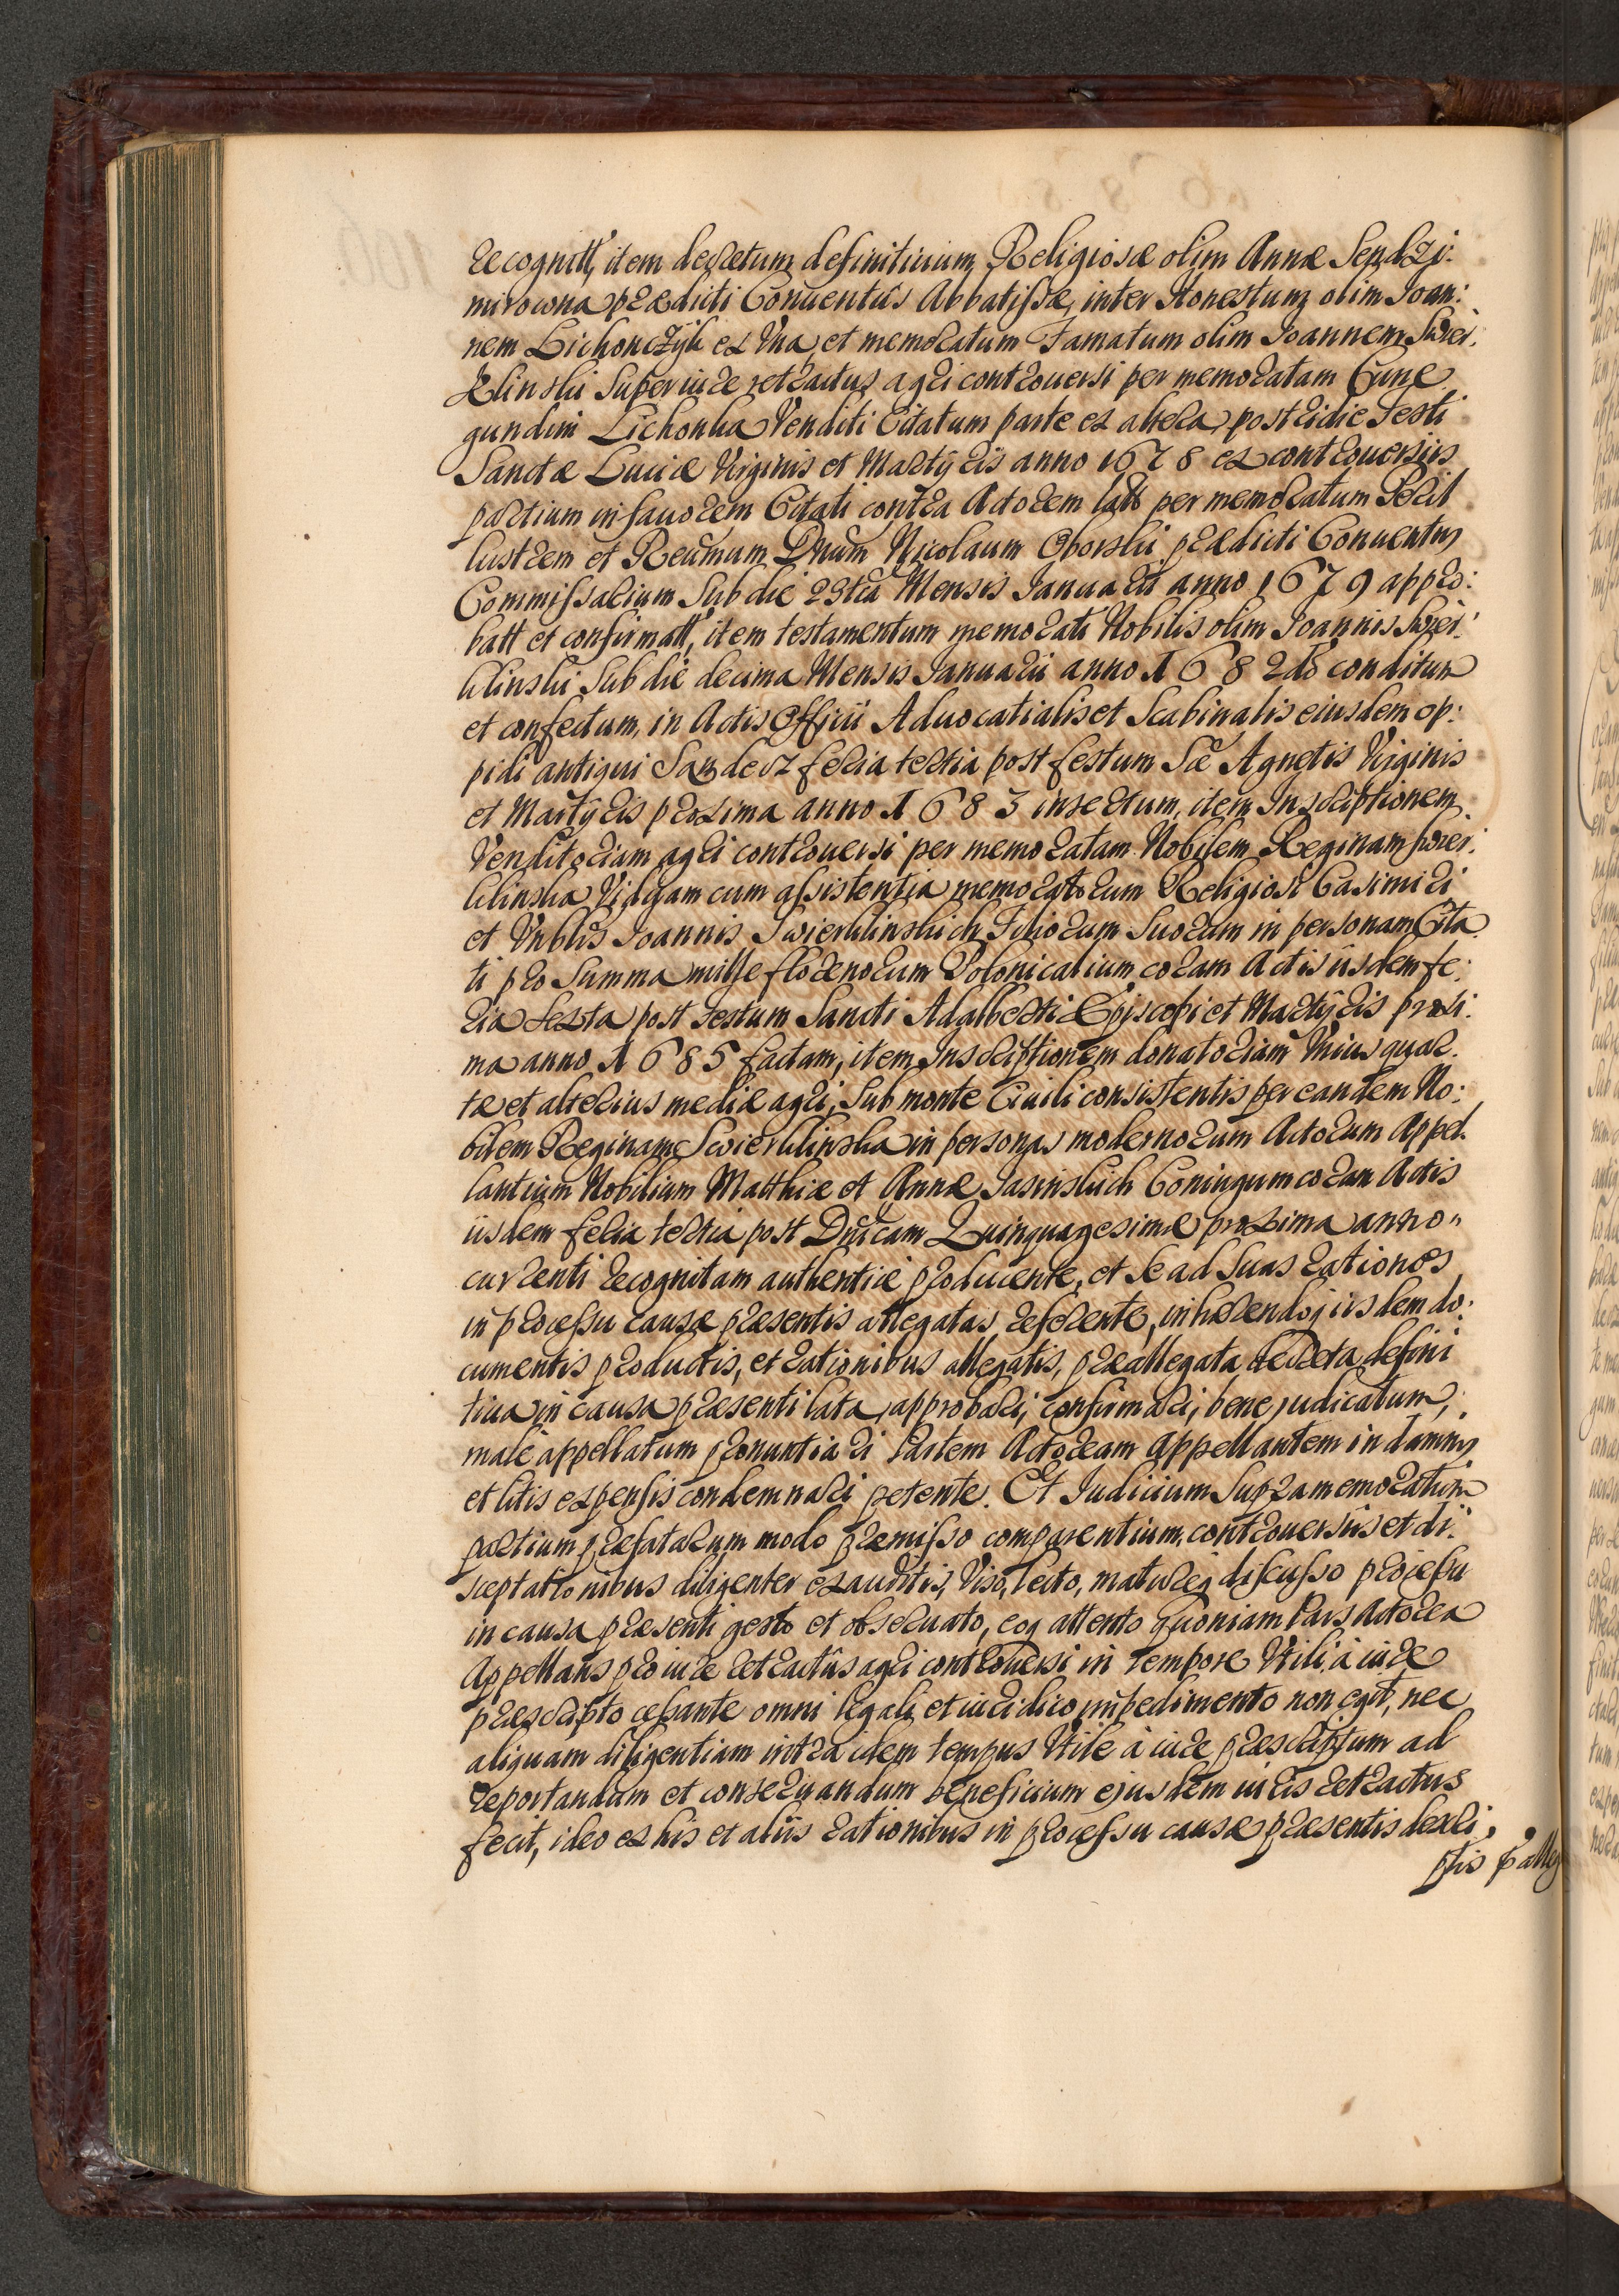 recognitt, item decretum definitiuum Religiosæ olim Annæ Sendzi:
mirowna prædicti Conuentûs Abbatissæ, inter Honestum olim Ioan:
nem Lichonczÿk ex Vna, et memoratum Famatum olim Ioannem Swier:
klinski Super iure retractus agri controuersi per memoratam Cune
gundim Lichonka Venditi Citatum parte ex altera, postridie Festi
Sanctæ Luciæ Virginis et Martÿris anno 1678 ex controuersiis
partium in fauorem Citati contra Actorem latt per memoratum Peril
lustrem et Reumum Dnum Nicolaum Oborski prædicti Conuentus
Commissarium Sub die 23tia Mensis Ianuarii anno 1679 appro:
batt et confirmatt, item testamentum memorati Nobilis olim Ioannis Swier:
klinski Sub die decima Mensis Ianuarii anno 1682do conditum
et confectum, in Actis Officii Aduocatialis et Scabinalis eiusdem op:
pidi antiqui Sandecz feria tertia post festum Sæ Agnetis Virginis
et Martÿris proxima anno 1683 insertum, item Inscriptionem
Venditoriam agri controuersi per memoratam Nobilem Reginam Swier:
klinska Viduam cum assistentia memoratorum Religiosi Casimiri
et Vnblis Ioannis Swierklinskich Filiorum Suorum in personam Cita
ti pro Summa mille florenorum Polonicalium coram Actis iisdem fe:
ria Sexta post Festum Sancti Adalberti Episcopi et Martÿris proxi:
ma anno 1685 factam, item Inscriptionem donatoriam Vnius quar:
tæ et alterius mediæ agri, Sub monte Ciuili consistentis per eandem No:
bilem Reginam Swierklinska in personas modernorum Actorum Appel:
lantium Nobilium Matthiæ et Annæ Jasinskich Coniugum coram Actis
iisdem feria tertia post Dnicam Quinquagesimæ proxima anno
currenti recognitam authentice producente, et Se ad Suas rationes
in processu causæ præsentis allegatas, referente, inhærendoq iisdem do:
cumentis productis, et rationibus allegatis, præallegata decreta defini
tiua in causa præsenti lata, approbari, confirmari, bene judicatum,
male appellatum pronuntiari Partem Actoream Appellantem in damnis
et litis expensis condemnari petente. Et Iudicium Supramemoratum
partium præfatarum modo præmisso comparentium, controuersiis et di:
sceptationibus diligenter exauditis, Viso, lecto, matureq discusso processu
in causa præsenti gesto et obseruato, eoq attento quoniam Pars Actorea
Appellans pro iure retractûs agri controuersi in tempore Vtili, à iure
præscripto cessante omni legali et iuridico impedimento non egit, nec
aliquam diligentiam intra idem tempus Vtile à iure præscriptum ad
reportandum et conseruandum beneficium ejusdem iuris retractus
fecit, ideo ex his et aliis rationibus in processu causæ præsentis descri:
ptis